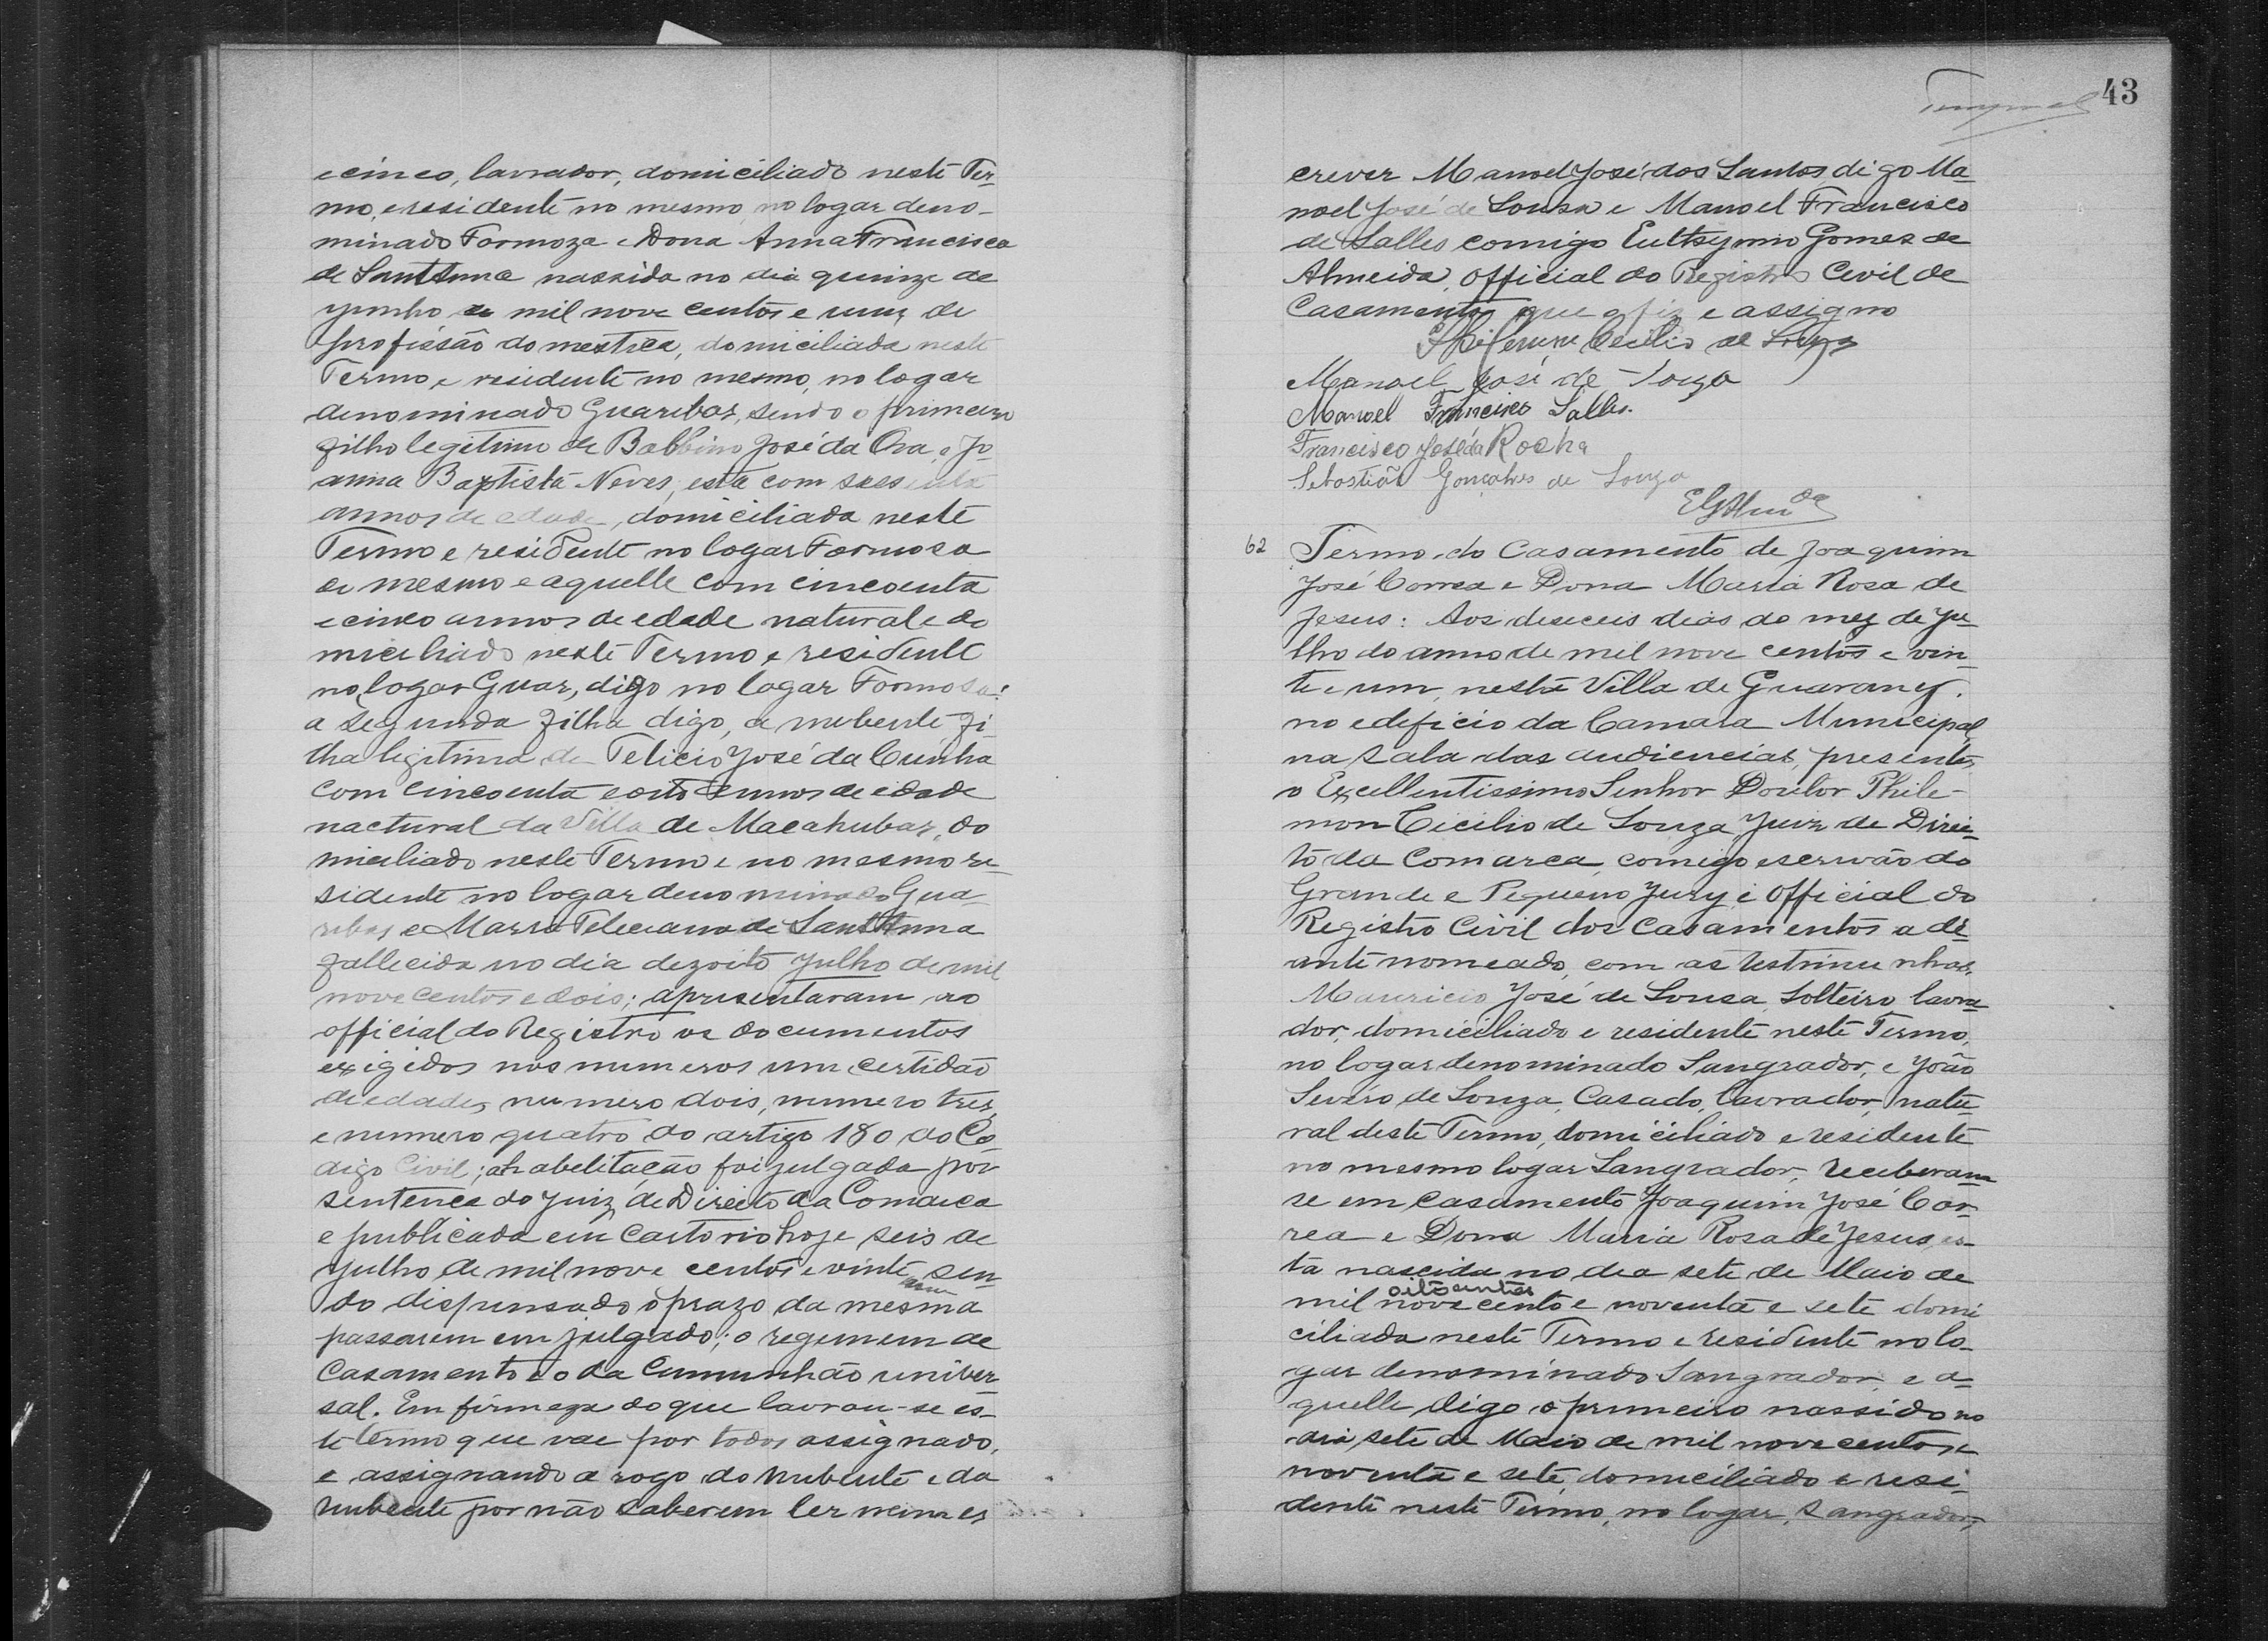 ecinco, lavrador, domiciliado neste Ter-
mo, e residente no mesmo, no logar deno-
minado Formoza e Dona Anna Francisca
de Sant'Anna nassida no dia quinze de
Junho de mil nove centos e um, de
profissão domestica, domiciliada neste
Termo e residente no mesmo, no logar
denominado Guaribas, sendo o primeiro
filho legitimo de Balbino José da e Jo-
anna Baptista Neves, esta com sessenta
annos de edade, domiciliada neste
Termo e residente no logar Formosa
do mesmo e aquelle com cincoenta
e cinco annos de edade natural e do
miciliado neste Termo e residente
no logar Guar, digo no logar Formosa:
a segunda filha digo, a nubente fi-
lha legitima de Felicio José da Cunha
com cincoenta e oito annos de edade
nactural da Villa de Macahubas, do
miciliado neste Termo e no mesmo re-
sidente no logar denominado Gua-
ribas e Maria Feleciana de Sant'Anna
fallecida no dia dezoito Julho de mil
nove centos e dois; apresentaram ao
official do Registro os documentos
exigidos nos numeros um, certidão
de edades, numero dois, numero tres,
e numero quatro do artigo 180 do Co-
digo Civil; a habelitação foi julgada por
sentença do Juiz de Direito da Comarca
e publicada em Cartorio hoje seis de
Julho de mil nove centos e vinte e um sen-
do dispensado o prazo da mesma
passarem em julgado; o regimem de
Casamento é o da Cummunhão univer
sal. Em firmeza do que lavrou-se es-
te termo que vae por todos assignado,
e assignando a rogo do nubente e da
nubente por não saberem ler nem es
43
crever Manoel José dos Santos digo Ma-
noel José de Sousa e Manoel Francisco
de Salles comigo Euthymio Gomes de
Almeida, official do Registro Civil de
Casamentos que o fiz e assigno
Philemon Cecilio de Souza
Manoel José de Souza
Manoel Francisco Salles.
Francisco José da Rocha
Sebastião Gonçalves de Souza
EGAlmda
62 Termo do Casamento de Joaquim
José Correa e Dona Maria Rosa de
Jesus: Aos deseceis dias do mez de Ju-
lho do anno de mil nove centos e vin-
te e um, nesta Villa de Guarany.
no edificio da Camara Municipal,
na sala das audiencias, presente
o Excellentissimo Senhor Doutor Phile-
mon Cicilio de Souza, Juiz de Direi-
to da Comarca, comigo escrivão do
Grande e Pequeno Jury e official do
Registro Civil dos Casamentos a di-
ante nomeado, com as testimunhas,
Mauricio José de Sousa, Solteiro lavra-
dor, domiciliado e residente neste Termo,
no logar denominado Sangrador, e João
Sevéro de Souza, Casado, lavrador, natu-
ral deste Termo, domiciliado e residente
no mesmo logar Sangrador, receberam-
se em casamento Joaquim José Cor-
rea e Dona Maria Rosa de Jesus, es-
ta nascida no dia sete de Maio de
mil nove cento oitocentos e noventa e sete domi
ciliada neste Termo e residente no lo-
gar denominado Sangrador, e a-
quelle, digo o primeiro nassido no
dia sete de Maio de mil nove centos e
noventa e sete, domiciliado e resi-
dente neste Termo, no logar, Sangrador,